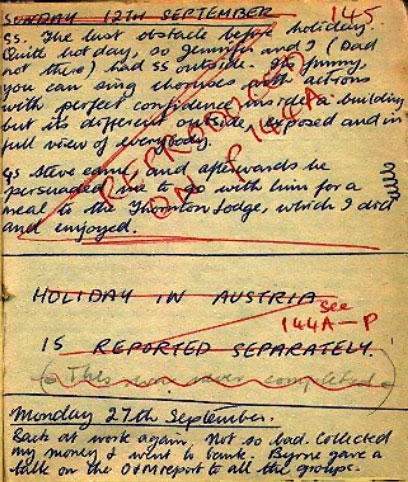 SUNDAY 12TH SEPTEMBER
145
SS. The last obstacle before holiday.
Quite hot day, so Jennifer and I (Dad
not there) had SS outside. Its funny,
you can sing choruses with actions
with perfect confidence inside a building
but its different outside, exposed and in
full view of everybody.
REPRODUCED
ON P 144A
GS Steve came, and afterwards he
persuaded me to go with him for a
meal to the Thornton Lodge, which I did
and enjoyed.
HOLIDAY IN AUSTRIA
see
144A-P
IS REPORTED SEPARATELY.
(This was never completed)
Monday 27th September.
Back at work again. Not so bad. Collected
my money & went to bank. Byrne gave a
talk on the O+M report to all the groups.